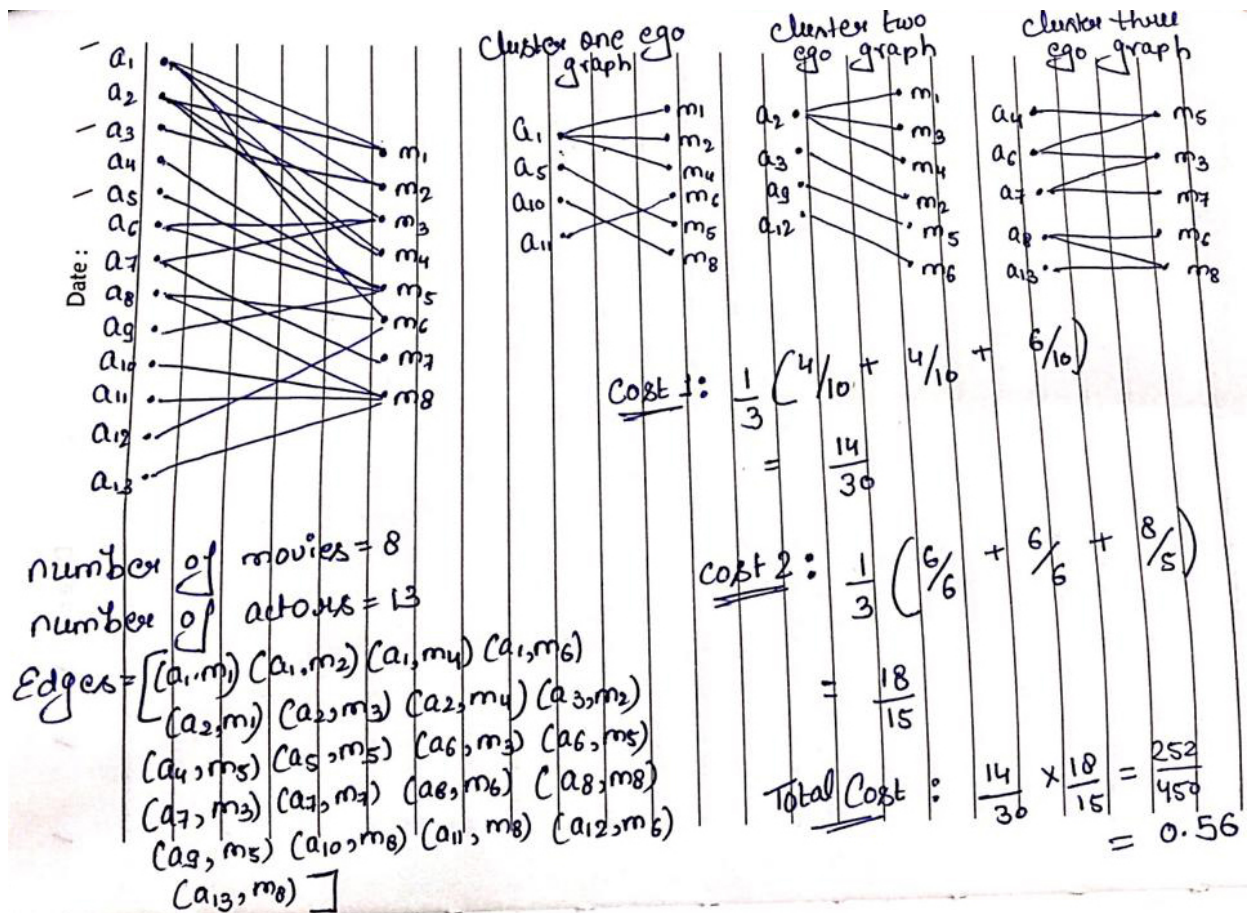 Date:
a1
a2
a3
a4
a5
a6
a7
a8
a9
a10
a11
a12
a13
m1
m2
m3
m4
m5
m6
m7
m8
Cluster one ego
graph
a1
a5
a10
a11
m1
m2
m4
m6
m5
m8
Cluster two
ego graph
a2
a3
a9
a12
m1
m3
m4
m2
m5
m6
Cluster three
ego graph
a4
a6
a7
a8
a13
m5
m3
m7
m6
m8
Cost 1: 1/3 (4/10 + 4/10 + 6/10)
= 14/30
Cost 2: 1/3 (6/6 + 6/6 + 8/5)
= 18/15
Total Cost: 14/30 x 18/15 = 252/450
= 0.56
number of movies = 8
number of actors = 13
Edges = [(a1,m1) (a1,m2) (a1,m4) (a1,m6)
(a2,m1) (a2,m3) (a2,m4) (a3,m2)
(a4,m5) (a5,m5) (a6,m3) (a6,m5)
(a7,m3) (a7,m7) (a8,m6) (a8,m8)
(a9,m5) (a10,m8) (a11,m8) (a12,m6)
(a13,m8)]